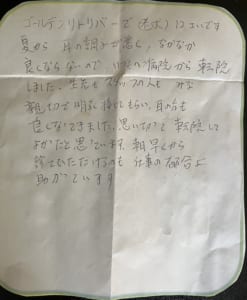 ゴールデンリトリバーで(もか)12才です
夏から 耳の調子が悪く、なかなか
良くならないので 病院から転院
しました。先生もスタッフの人も みな
親切で明るく接してもらい、耳の方も
良くなってきました。思い切って転院して
よかったと思っています。朝早くから
診ていただけるのも 仕事の都合上
助かっています